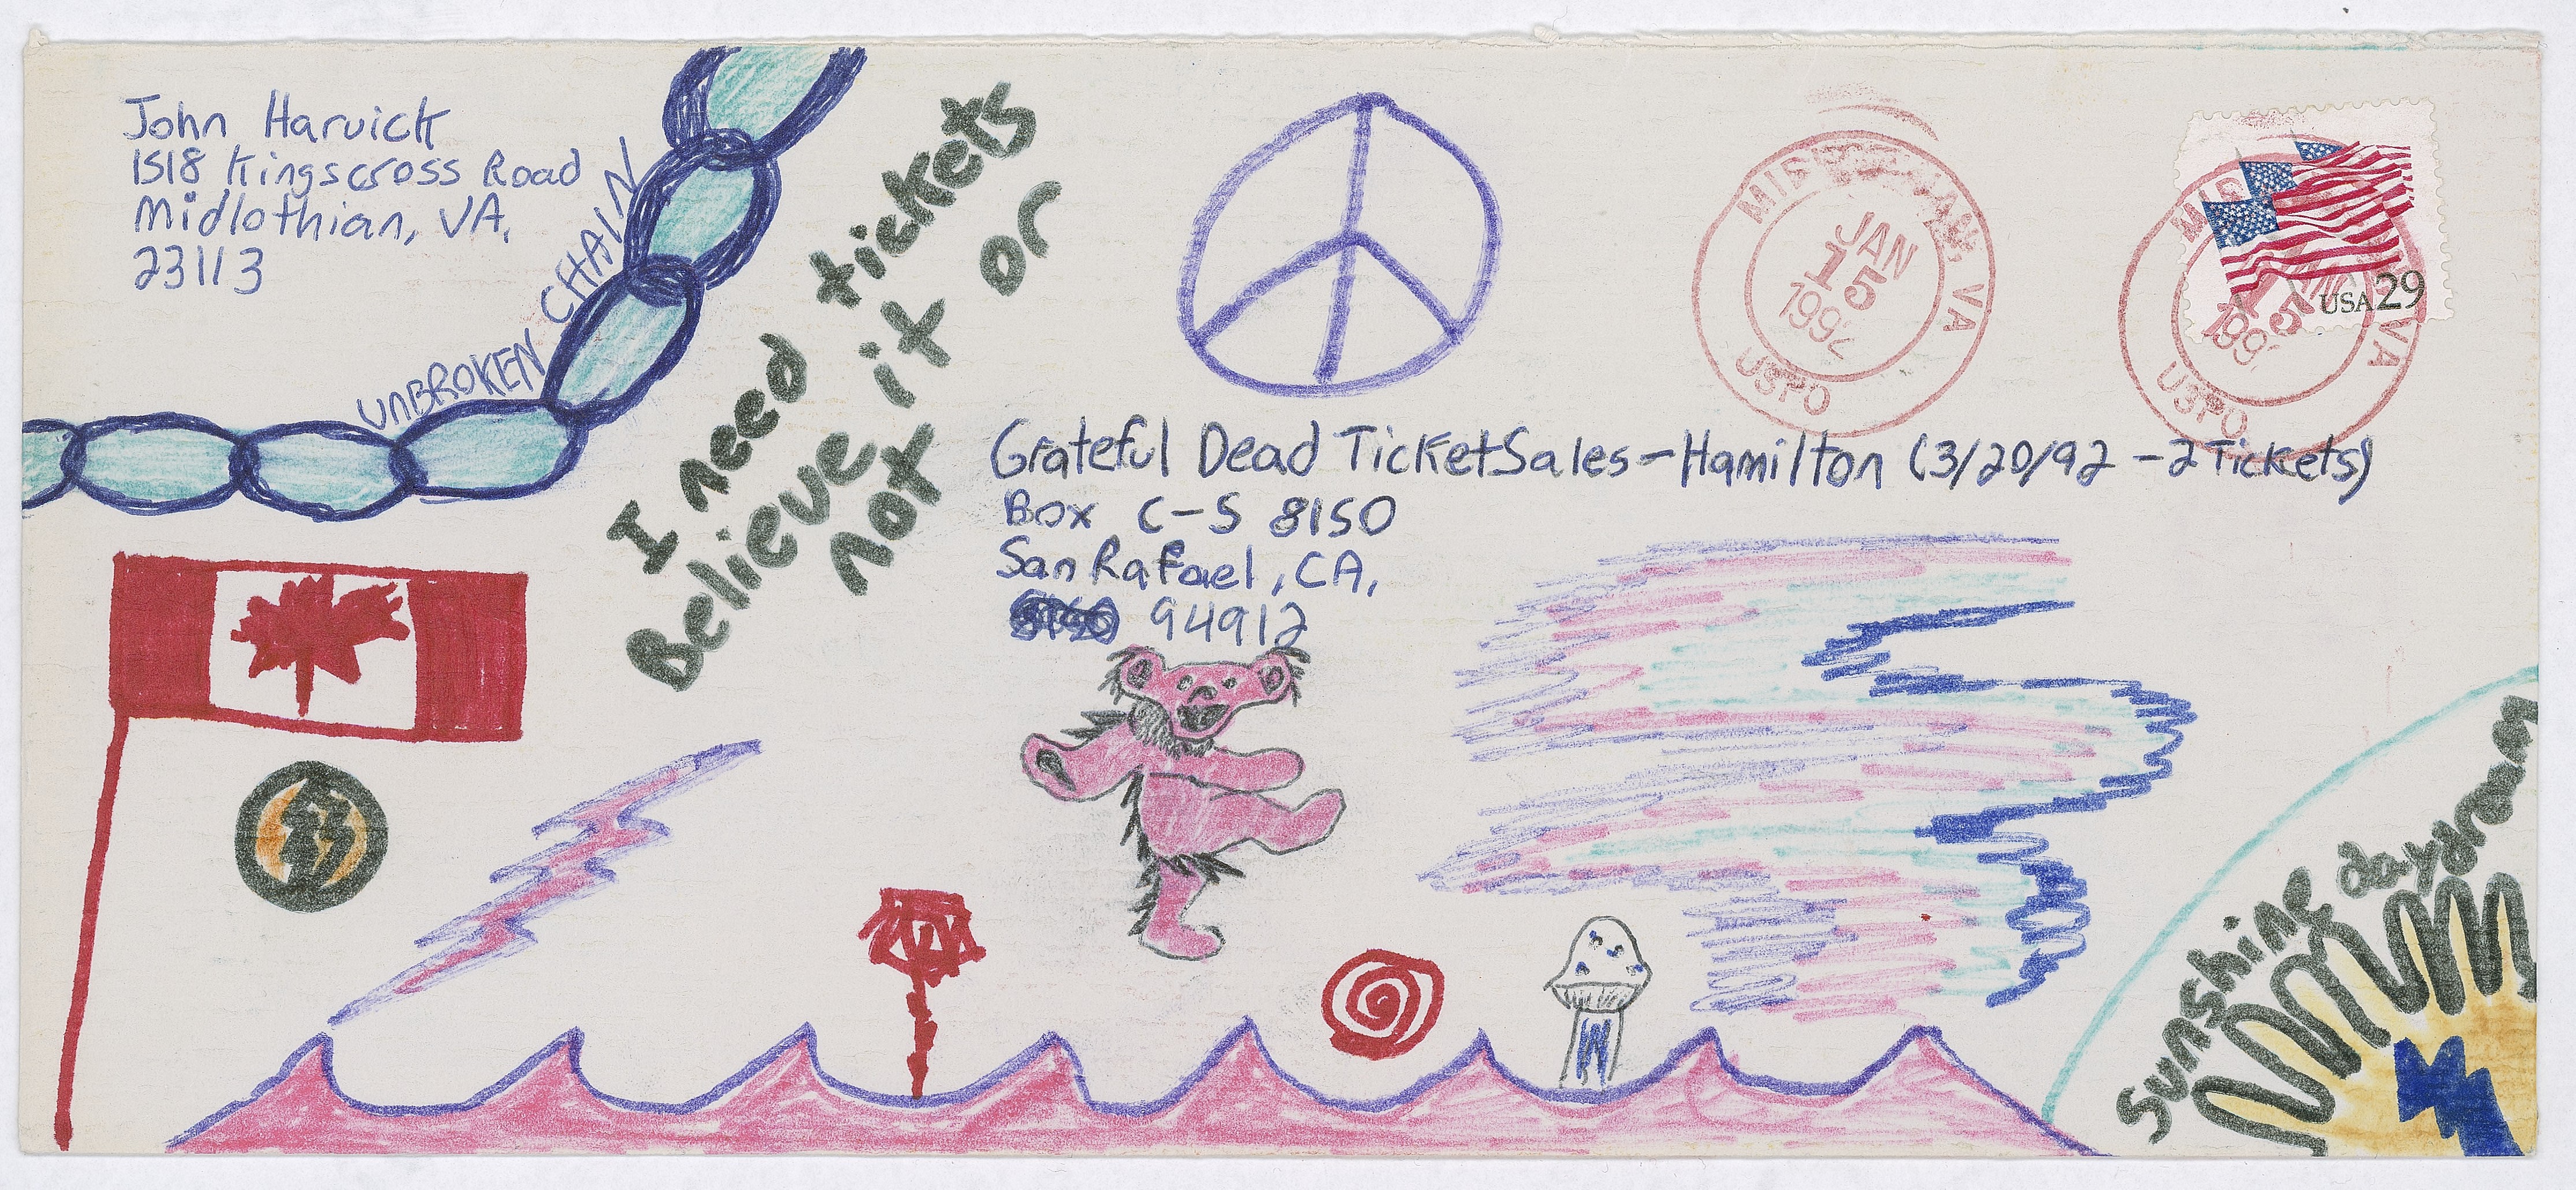 John Harvick
1518 Kingscross Road
Midlothian, VA,
23113
UNBROKEN CHAIN
I need tickets
Believe it or
not
MIDLOTHIAN, VA
JAN
15
1992
USPO
MIDLOTHIAN, VA
JAN
15
199
USPO
USA 29
Grateful Dead Ticket Sales - Hamilton (3/20/92 - 2 Tickets)
Box C-S 8150
San Rafael, CA,
94912
Sunshine daydream